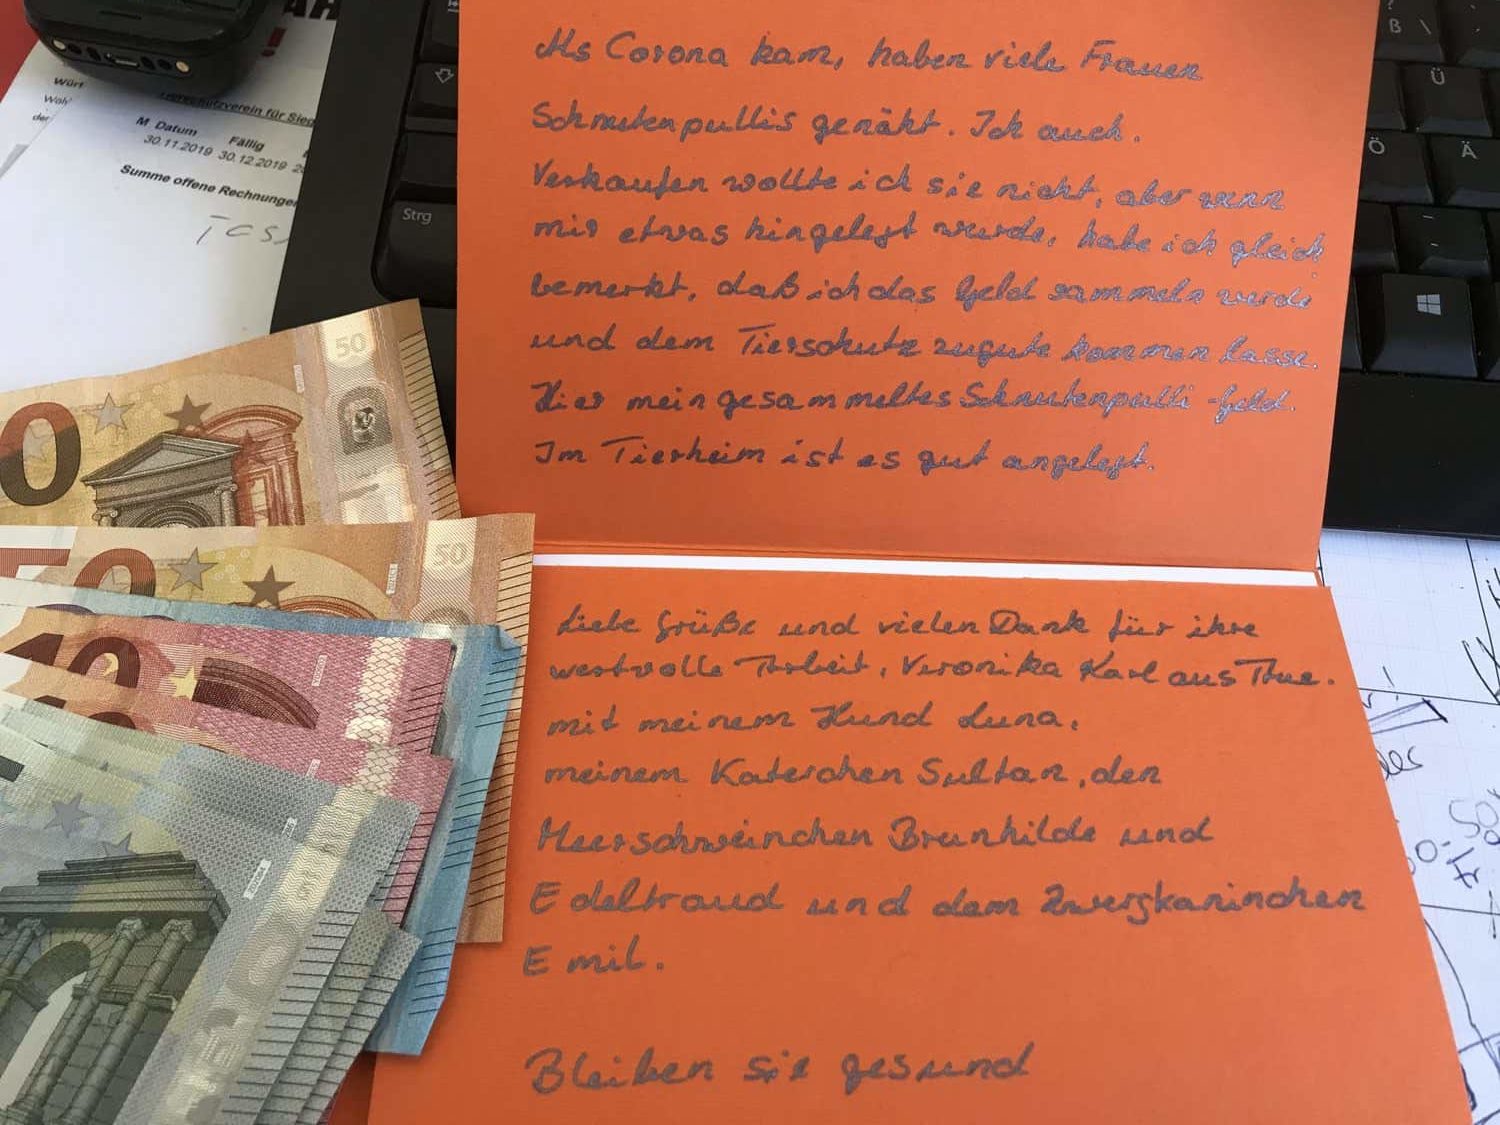 Würt
Wohl
der
Tierschutzverein für Sieg
M Datum Fällig
30.11.2019 30.12.2019
Summe offene Rechnungen
Strg
ß \
Ü
Ö Ä
Als Corona kam, haben viele Frauen
Schnutenpullis genäht. Ich auch.
Verkaufen wollte ich sie nicht, aber wenn
mir etwas hingelegt wurde, habe ich gleich
bemerkt, daß ich das Geld sammeln werde
und dem Tierschutz zugute kommen lasse.
Hier mein gesammeltes Schnutenpulli-Geld.
Im Tierheim ist es gut angelegt.
50
0
50
50
10
Liebe Grüße und vielen Dank für ihre
wertvolle Arbeit, Veronika Karl aus Thue.
mit meinem Hund Luna,
meinem Katerchen Sultan, den
Meerschweinchen Brunhilde und
Edeltraud und dem Zwergkaninchen
Emil.
Bleiben sie gesund